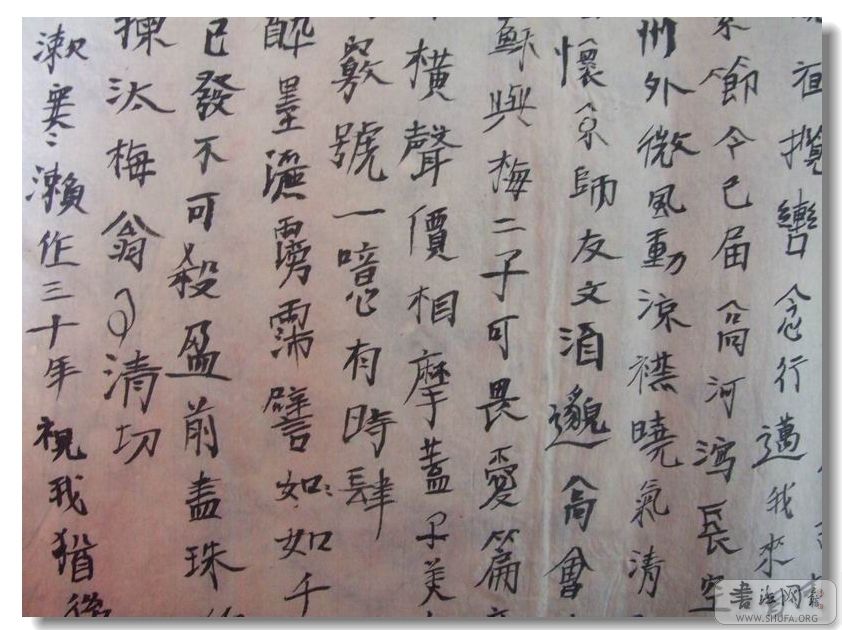 夜攬轡念行邁我來
素節今已届高河瀉長空
州外微風動涼襟曉氣清
懷京師友文酒邈高會
蘇與梅二子可畏愛篇
橫聲價相摩蓋子美
號一噫有時肆
醉墨灑霶霈譬如如千
已發不可殺盈前盡珠
揀汰梅翁事清切
漱寒瀨作三十年視我猶後
書法网
WWW.SHUFA.ORG